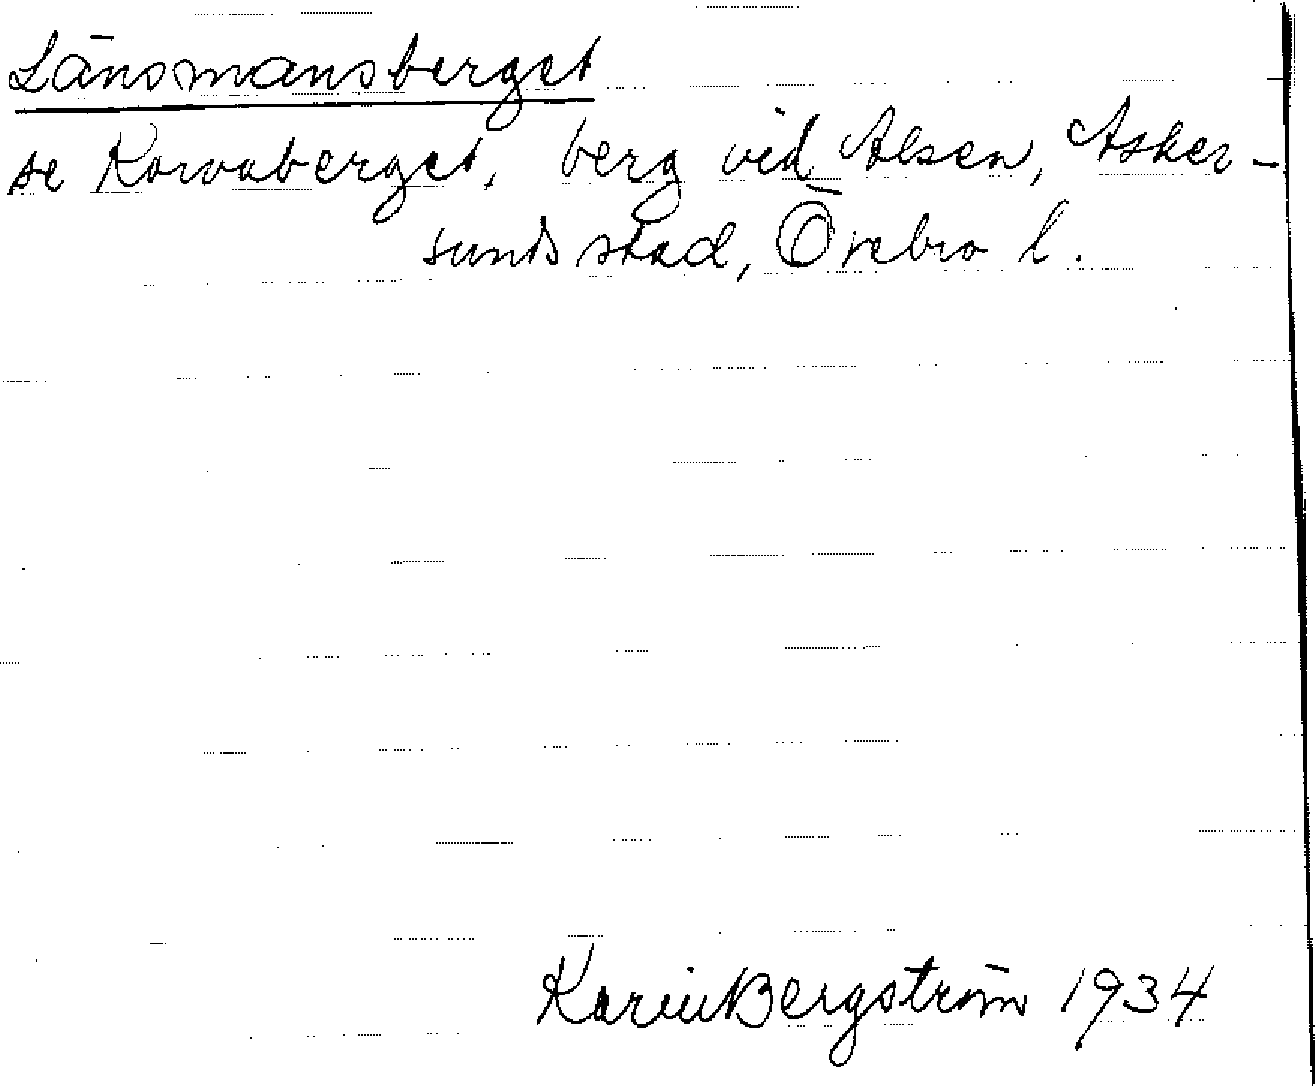 Länsmansberget
se Korvaberget, berg vid Alsen, Asker-
sunds stad, Örebro l.
Karin Bergström 1934